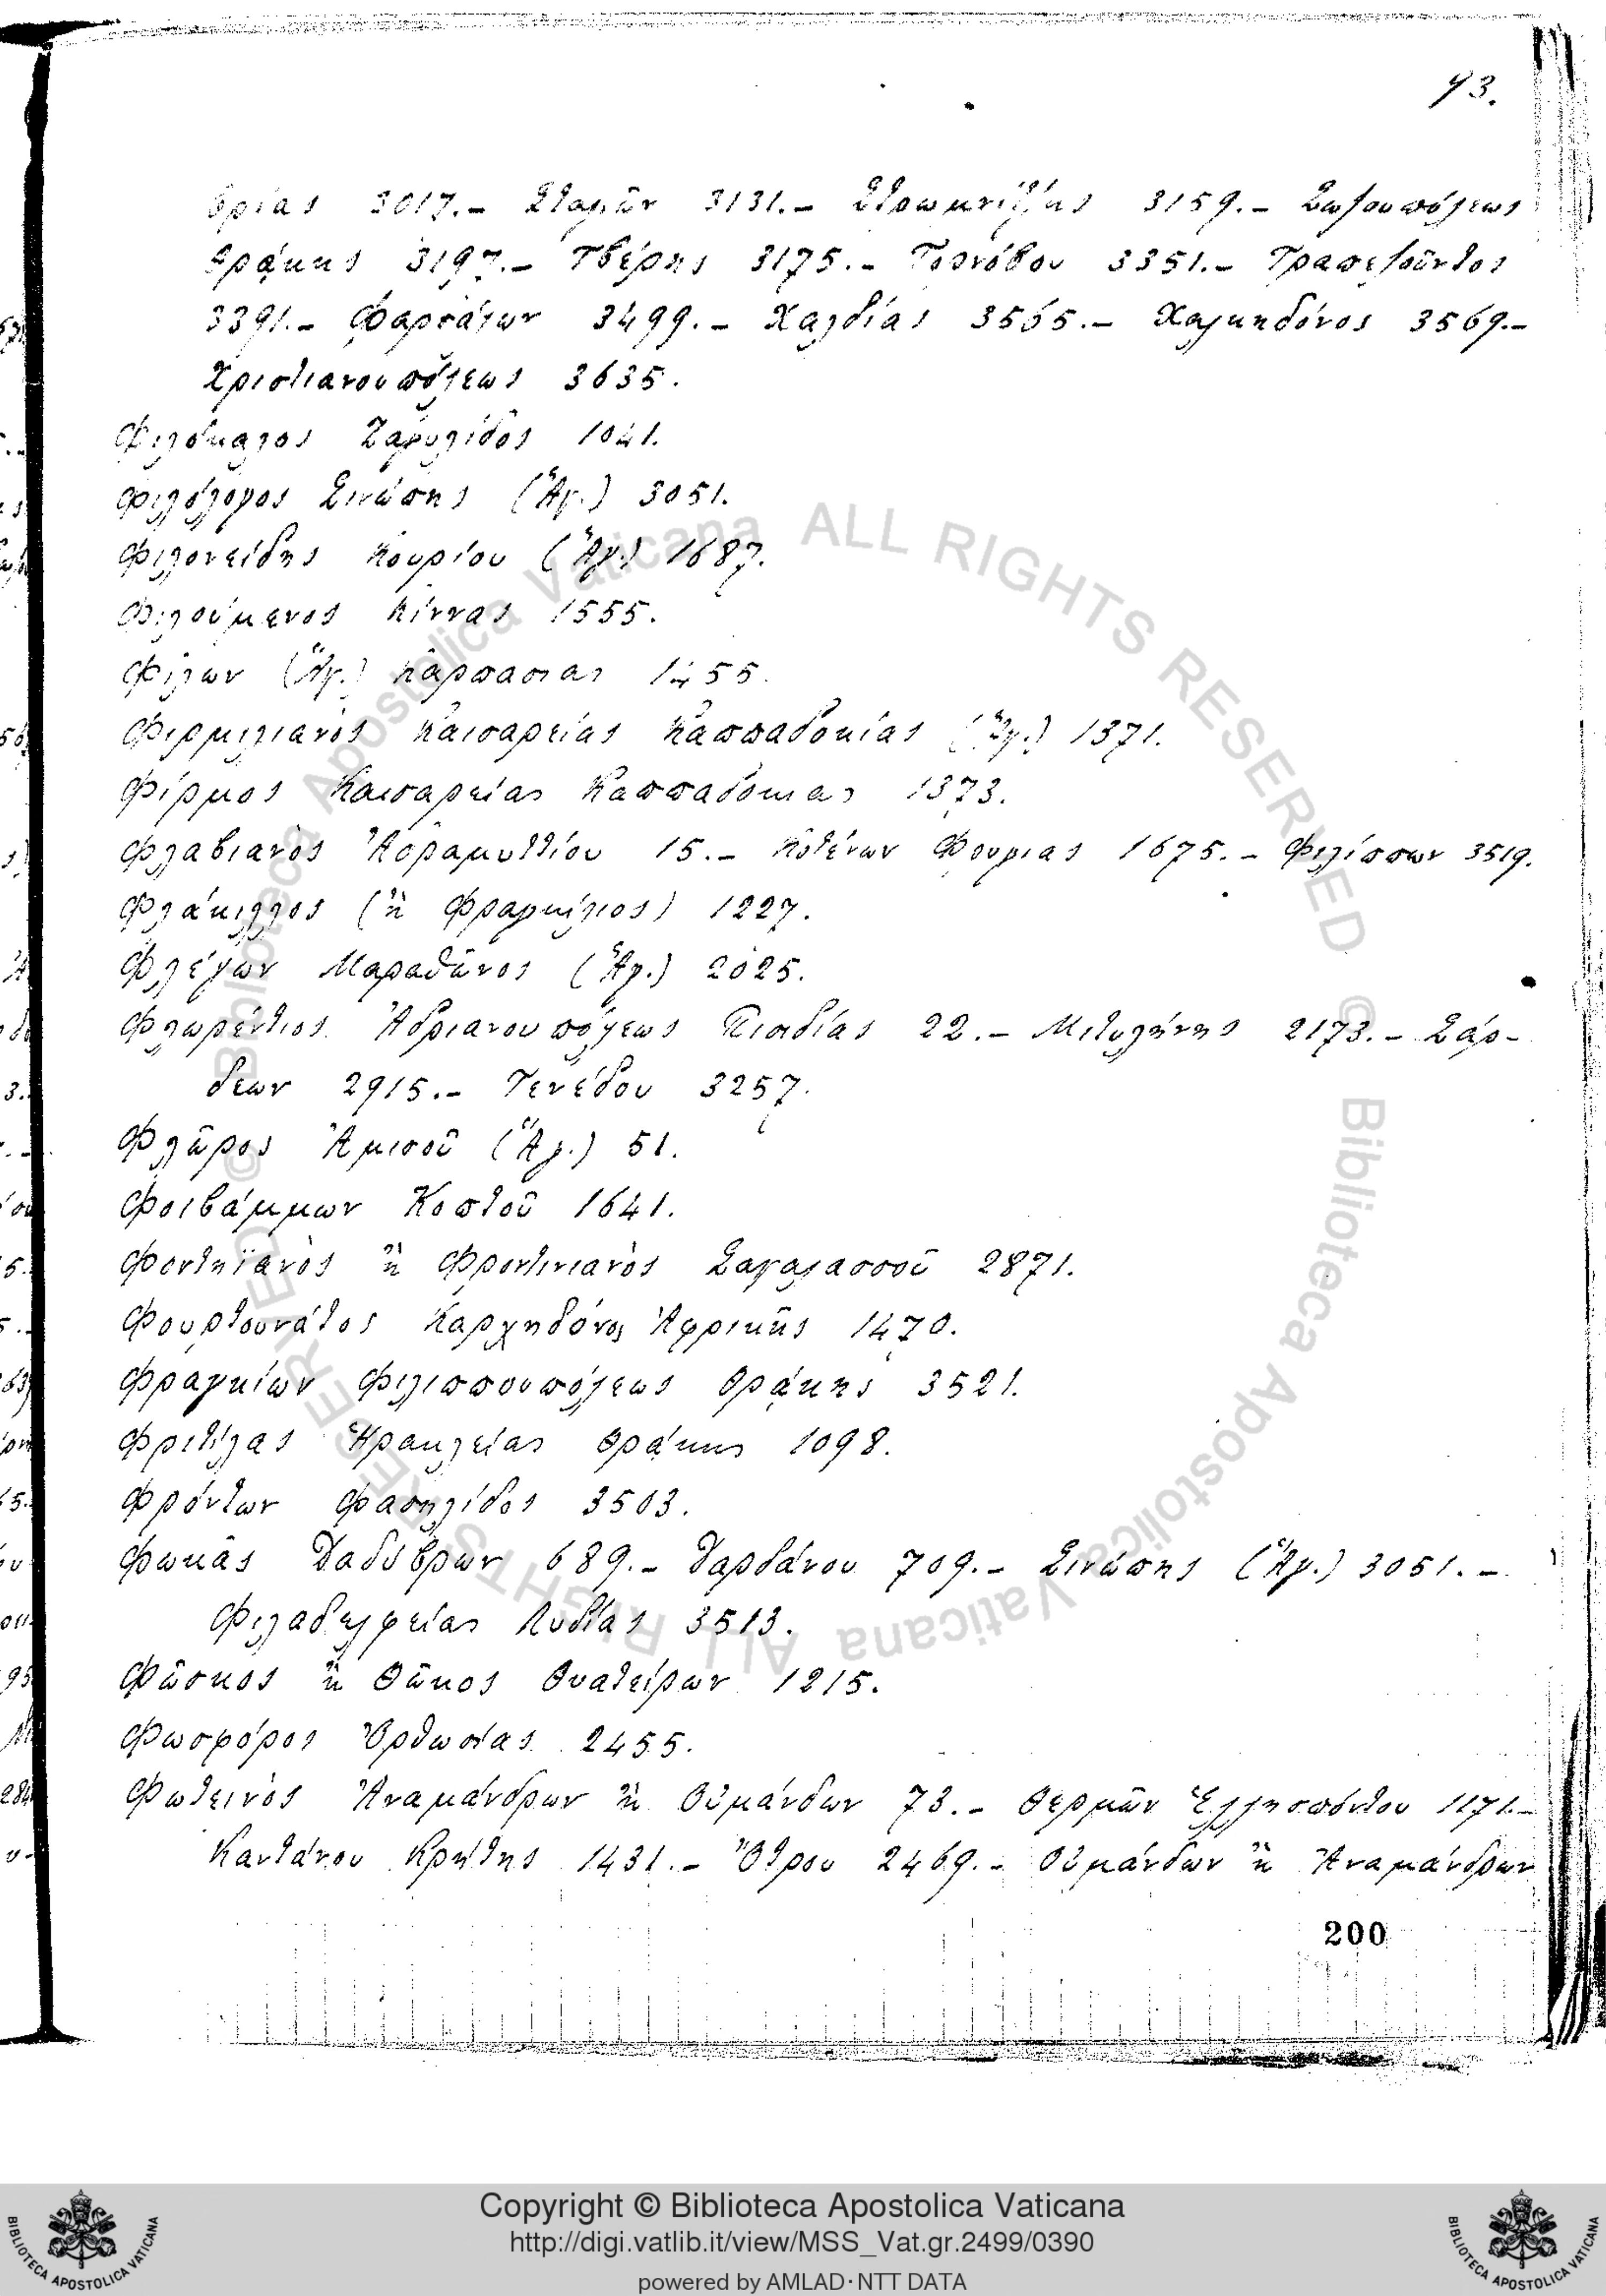 93.
βρίας 3017.- Σταγῶν 3131.- Στρωμνίτζης 3159.- Σωζουπόλεως
Θρᾴκης 3197.- Τβέρης 3175.- Τορνόβου 3351.- Τραπεζοῦντος
3391.- Φαρσάλων 3499.- Χαλδίας 3565.- Χαλκηδόνος 3569.-
Χριστιανουπόλεως 3635.
Φιλόκαλος Ζαρυλίδος 1041.
Φιλόλογος Σινώπης (Ἅγ.) 3051.
Φιλονείδης Κουρίου (Ἅγ.) 1687.
Φιλούμενος Κίννας 1555.
Φίλων (Ἅγ.) Καρπασίας 1455.
Φιρμιλιανὸς Καισαρείας Καππαδοκίας (Ἅγ.) 1371.
Φίρμος Καισαρείας Καππαδοκίας 1373.
Φλαβιανὸς Ἀδραμυττίου 15.- Κοτένων Φρυγίας 1675.- Φιλίππων 3519.
Φλάκιλλος (ἢ Φραγκίλιος) 1227.
Φλέγων Μαραθῶνος (Ἅγ.) 2025.
Φλωρέντιος Ἀδριανουπόλεως Πισιδίας 22.- Μιτυλήνης 2173.- Σάρ-
δεων 2915.- Τενέδου 3257.
Φλῶρος Ἀμισοῦ (Ἅγ.) 51.
Φοιβάμμων Κοπτοῦ 1641.
Φοντηϊανὸς ἢ Φροντινιανὸς Σαγαλασσοῦ 2871.
Φουρτουνάτος Καρχηδόνος Ἀφρικῆς 1470.
Φραγκίων Φιλιππουπόλεως Θρᾴκης 3521.
Φριτίλας Ἡρακλείας Θρᾴκης 1098.
Φρόντων Φασηλίδος 3503.
Φωκᾶς Δαδύβρων 689.- Δαρδάνου 709.- Σινώπης (Ἅγ.) 3051.-
Φιλαδελφείας Λυδίας 3513.
Φῶσκος ἢ Θῶκος Θυατείρων 1215.
Φωσφόρος Ὀρθωσίας 2455.
Φωτεινὸς Ἀναμάνδρων ἢ Οὐμάνδων 73.- Θερμῶν Ἑλλησπόντου 1171.-
Καντάνου Κρήτης 1431.- Ὄτρου 2469.- Οὐμάνδων ἢ Ἀναμάνδρων
200
© Biblioteca Apostolica Vaticana ALL RIGHTS RESERVED
© Biblioteca Apostolica Vaticana ALL RIGHTS RESERVED
Copyright © Biblioteca Apostolica Vaticana
http://digi.vatlib.it/view/MSS_Vat.gr.2499/0390
powered by AMLAD·NTT DATA
BIBLIOTECA APOSTOLICA VATICANA
BIBLIOTECA APOSTOLICA VATICANA